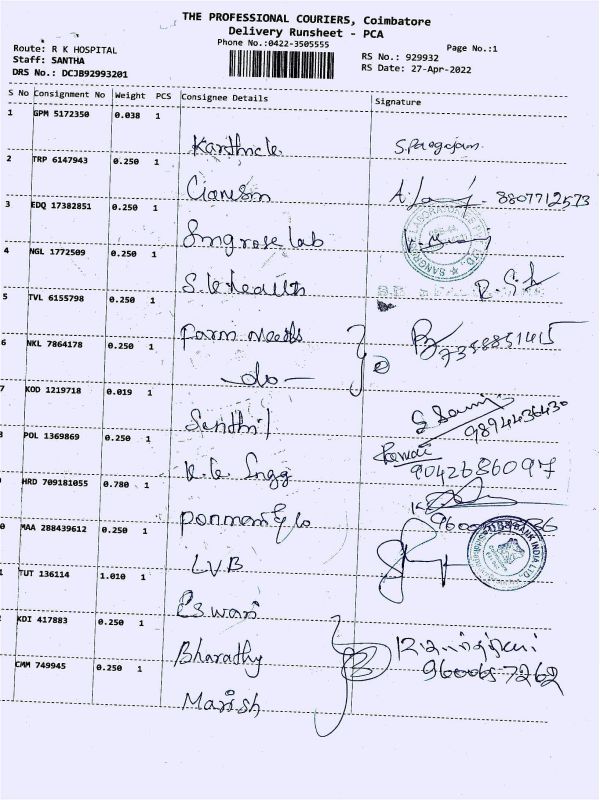 THE PROFESSIONAL COURIERS, Coimbatore
Delivery Runsheet - PCA
Phone No.:0422-3505555
Page No.:1
Route: R K HOSPITAL
Staff: SANTHA
DRS No.: DCJB92993201
RS No.: 929932
RS Date: 27-Apr-2022
S No Consignment No Weight PCS Consignee Details Signature
1 GPM 5172350 0.038 1 Karthick
2 TRP 6147943 0.250 1 8807712573
3 EDQ 17382851 0.250 1 lab
4 NGL 1772509 0.250 1 S.K Health
5 TVL 6155798 0.250 1 Farm needs 7358851415
6 NKL 7864178 0.250 1 -do-
7 KOD 1219718 0.019 1 Senthil 9894436430
8 POL 1369869 0.250 1 K.K. Engg 9042686097
9 HRD 709181055 0.780 1
0 MAA 288439612 0.250 1 LVB
1 TUT 136114 1.010 1 Eswari
2 KDI 417883 0.250 1 Bharathy 960065 7262
CMM 749945 0.250 1 Marish